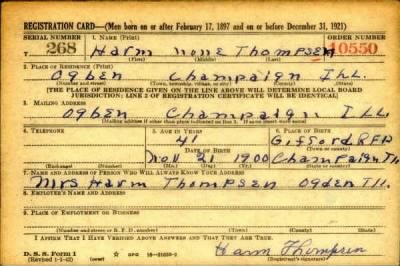 REGISTRATION CARD—(Men born on or after February 17, 1897 and on or before December 31, 1921)
SERIAL NUMBER 1. NAME (Print) ORDER NUMBER
T 268 Harm none Thompsen 10550
(First) (Middle) (Last)
2. PLACE OF RESIDENCE (Print)
Ogden Champaign Ill.
(Number and street) (Town, township, village, or city) (County) (State)
[THE PLACE OF RESIDENCE GIVEN ON THE LINE ABOVE WILL DETERMINE LOCAL BOARD
JURISDICTION; LINE 2 OF REGISTRATION CERTIFICATE WILL BE IDENTICAL]
3. MAILING ADDRESS
Ogden Champaign Ill
[Mailing address if other than place indicated on line 2. If same insert word same]
4. TELEPHONE 5. AGE IN YEARS 6. PLACE OF BIRTH
41 Gifford RFD
DATE OF BIRTH (Town or county)
Nov 21 1900 Champaign Ill
(Exchange) (Number) (Mo.) (Day) (Yr.) (State or country)
7. NAME AND ADDRESS OF PERSON WHO WILL ALWAYS KNOW YOUR ADDRESS
Mrs Harm Thompsen Ogden Ill.
8. EMPLOYER'S NAME AND ADDRESS
9. PLACE OF EMPLOYMENT OR BUSINESS
(Number and street or R. F. D. number) (Town) (County) (State)
I AFFIRM THAT I HAVE VERIFIED ABOVE ANSWERS AND THAT THEY ARE TRUE.
D. S. S. Form 1 GPO 16—21630-2 Harm Thompsen
(Revised 1-1-42) (over) (Registrant's signature)